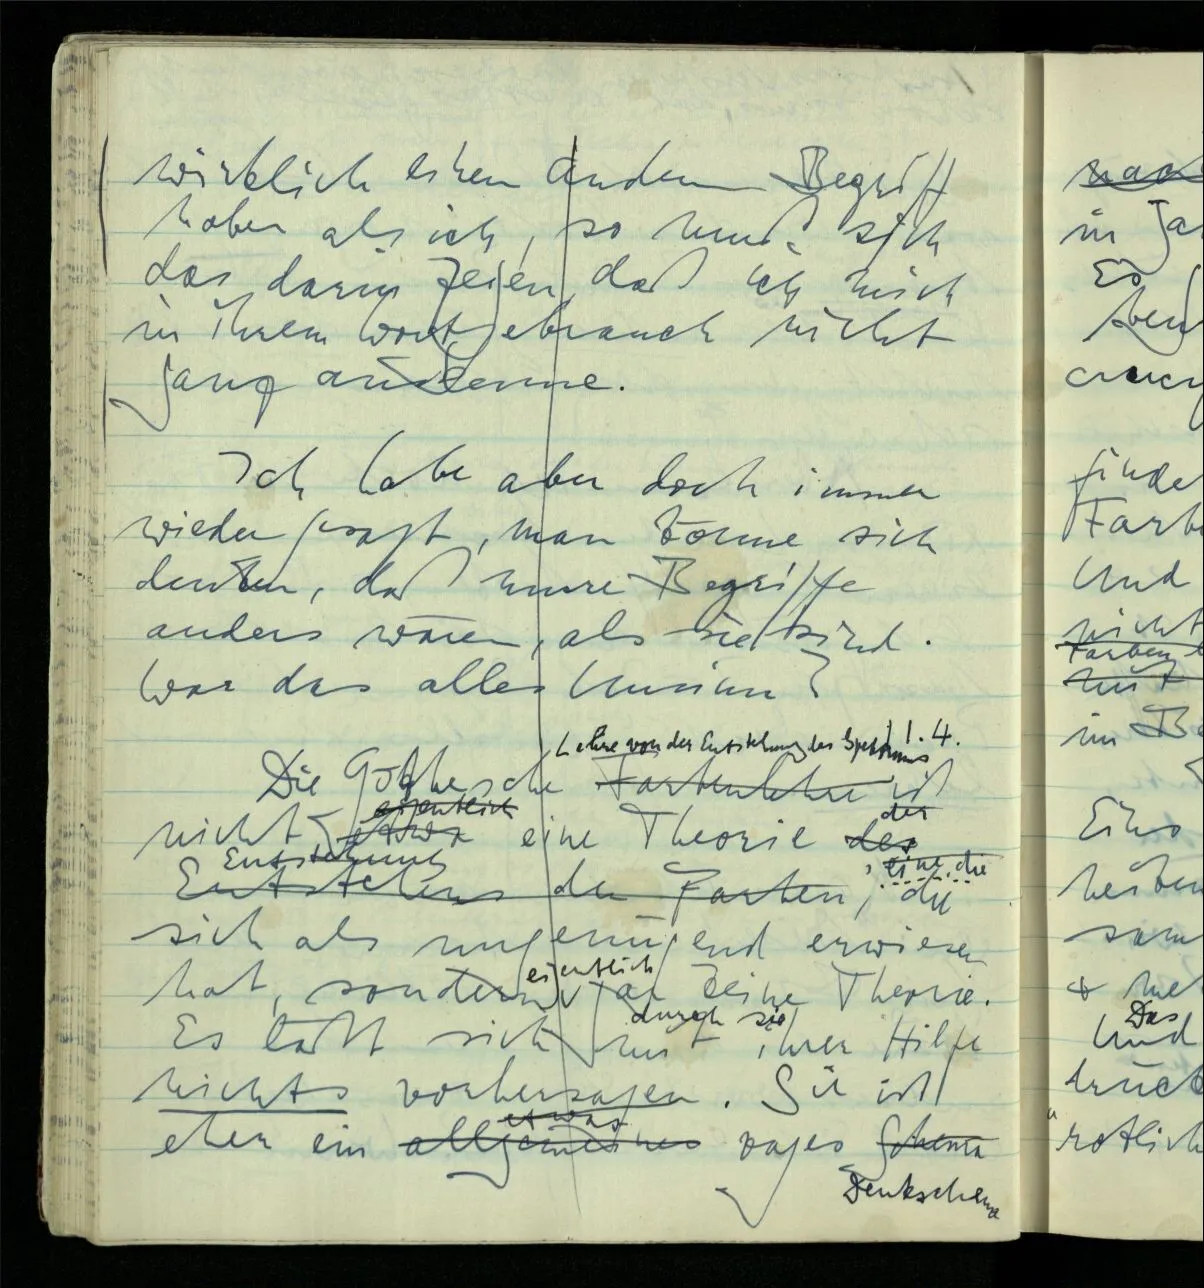 wirklich einen andern Begriff
haben als ich, so muß sich
das darin zeigen, daß ich mich
in ihrem Wortgebrauch nicht
ganz auskenne.
Ich habe aber doch immer
wieder gesagt, man könne sich
denken, daß unsre Begriffe
anders wären, als sie sind.
War das alles Unsinn?
11.4.
Lehre von der Entstehung des Spektrums
Die Göthesche Farbenlehre ist
eigentlich der
nicht etwa eine Theorie des
Entstehung , eine, die
Entstehens der Farben, die
sich als ungenügend erwiesen
eigentlich
hat, sondern gar keine Theorie.
durch sie
Es läßt sich mit ihrer Hilfe
nichts vorhersagen. Sie ist
etwas
eher ein allgemeines vages Schema
Denkschema
in
Es
finde
Farb
Und
nicht
Farben
mit
im
Eines
&
Das
Und
rötlich